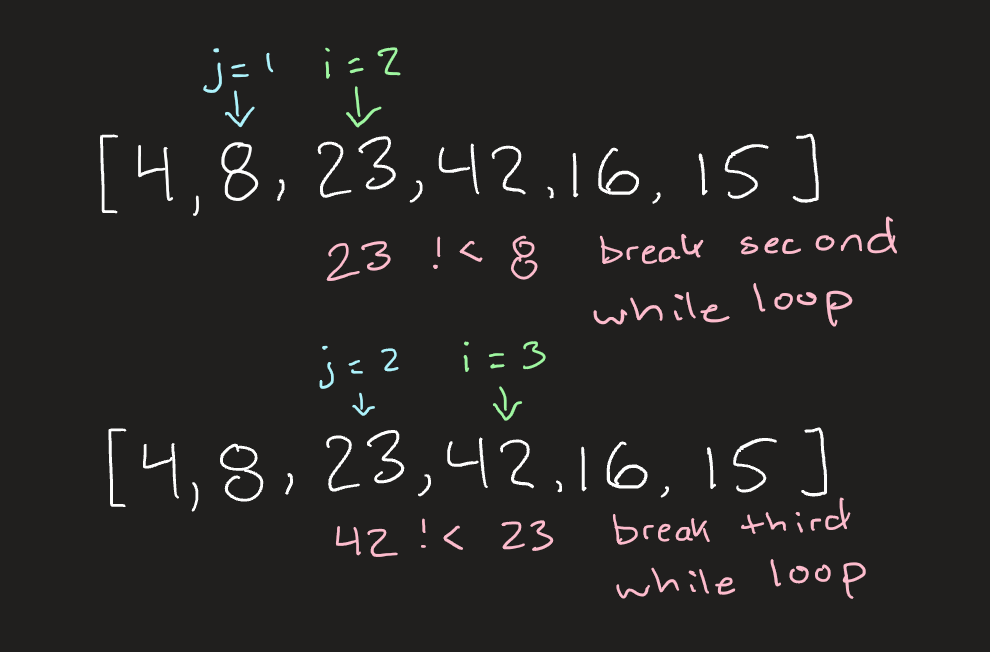 j = 1 i = 2
[ 4, 8, 23, 42, 16, 15 ]
23 !< 8 break second
while loop
j = 2 i = 3
[ 4, 8, 23, 42, 16, 15 ]
42 !< 23 break third
while loop